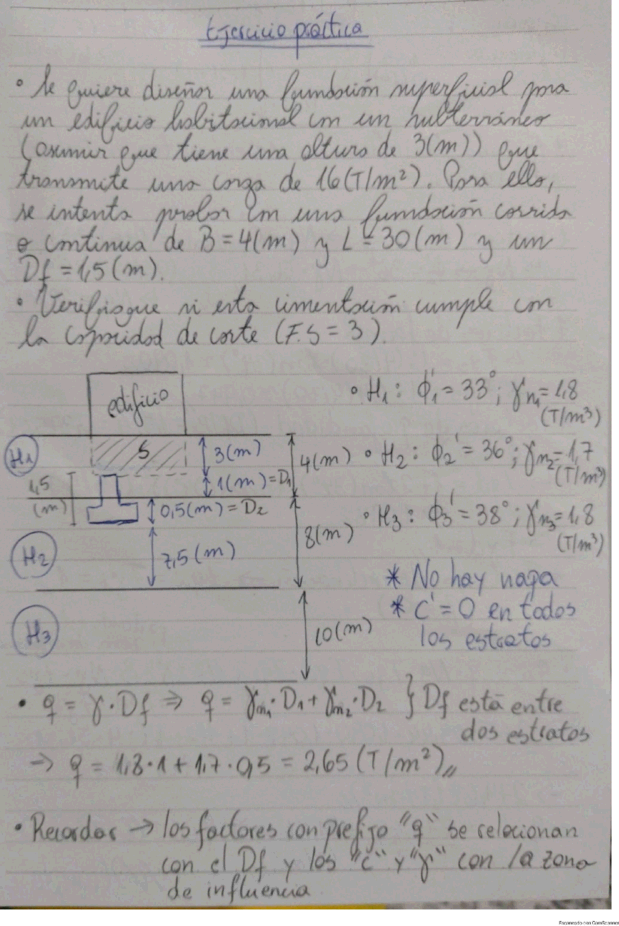 Ejercicio práctico
• Se quiere diseñar una fundación superficial para
un edificio habitacional con un subterráneo
(asumir que tiene una altura de 3(m)) que
transmite una carga de 16(T/m²). Para ello,
se intenta probar con una fundación corrida
o continua de B=4(m) y L=30(m) y un
Df=1,5(m).
• Verifique si esta cimentación cumple con
la capacidad de corte (F.S=3).
edificio
S
H1
1,5
(m)
3(m)
1(m)=D1
0,5(m)=D2
7,5(m)
4(m)
8(m)
10(m)
H2
H3
• H1: ϕ1'=33°; γm1=1,8
(T/m³)
• H2: ϕ2'=36°; γm2=1,7
(T/m³)
• H3: ϕ3'=38°; γm3=1,8
(T/m³)
* No hay napa
* C'=0 en todos
los estratos
• q=γ·Df ⇒ q=γm1·D1+γm2·D2 } Df está entre
dos estratos
→ q=1,8·1+1,7·0,5=2,65(T/m²)//
• Recordar → los factores con prefijo "q" se relacionan
con el Df y los "c" y "γ" con la zona
de influencia
Escaneado con CamScanner